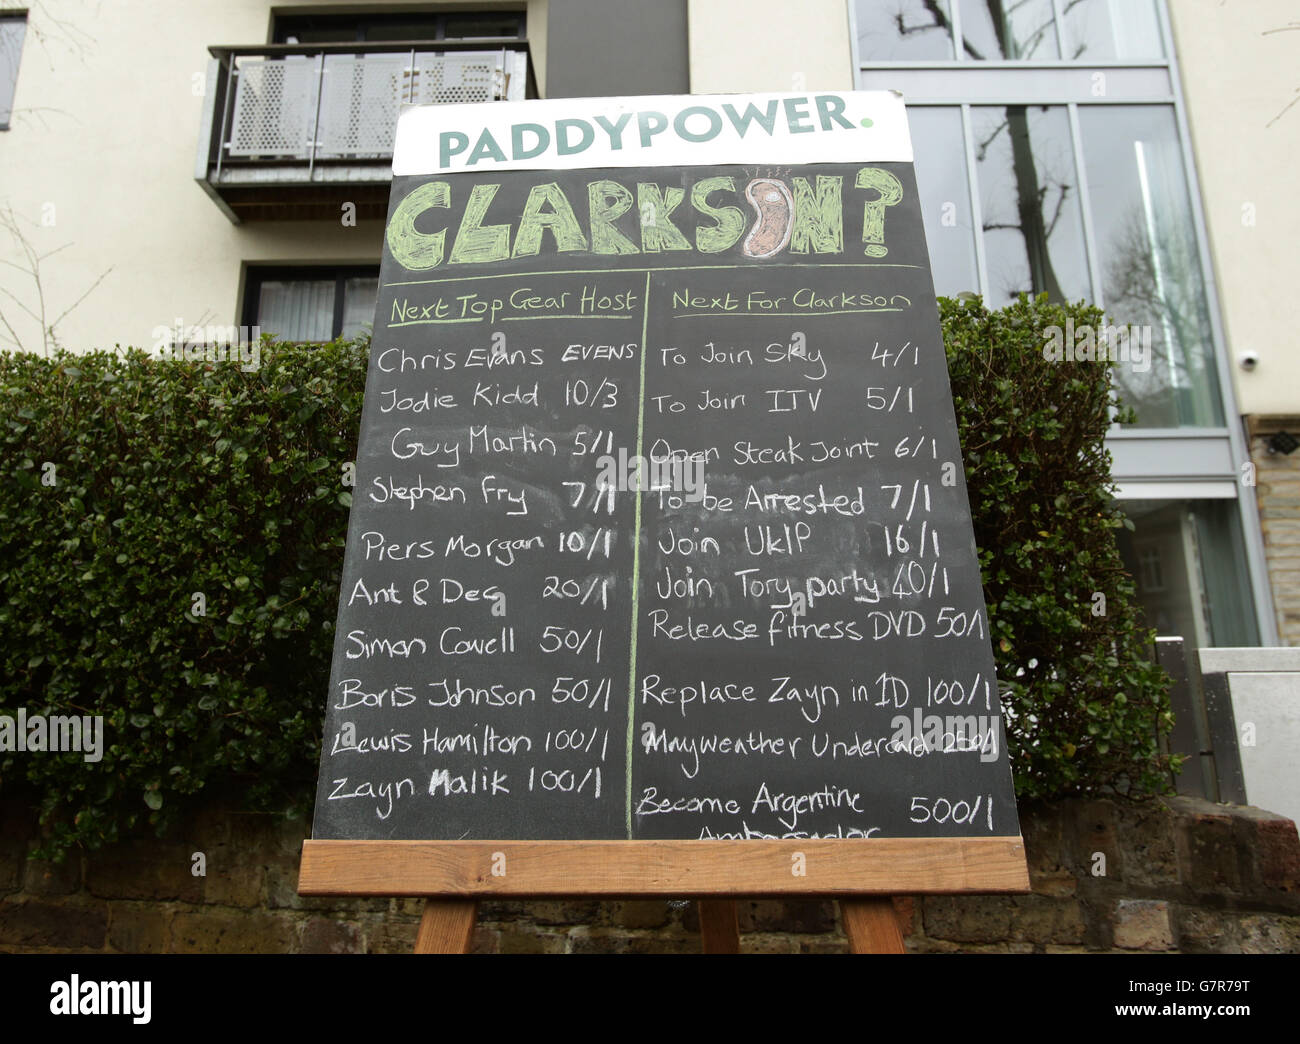 PADDYPOWER.
CLARKSON?
Next Top Gear Host
Chris Evans EVENS
Jodie Kidd 10/3
Guy Martin 5/1
Stephen Fry 7/1
Piers Morgan 10/1
Ant & Dec 20/1
Simon Cowell 50/1
Boris Johnson 50/1
Lewis Hamilton 100/1
Zayn Malik 100/1
Next For Clarkson
To Join Sky 4/1
To Join ITV 5/1
Open Steak Joint 6/1
To be Arrested 7/1
Join UKIP 16/1
Join Tory party 40/1
Release fitness DVD 50/1
Replace Zayn in 1D 100/1
Mayweather Undercard 250/1
Become Argentine 500/1
Ambassador
alamy
Image ID: G7R79T
www.alamy.com